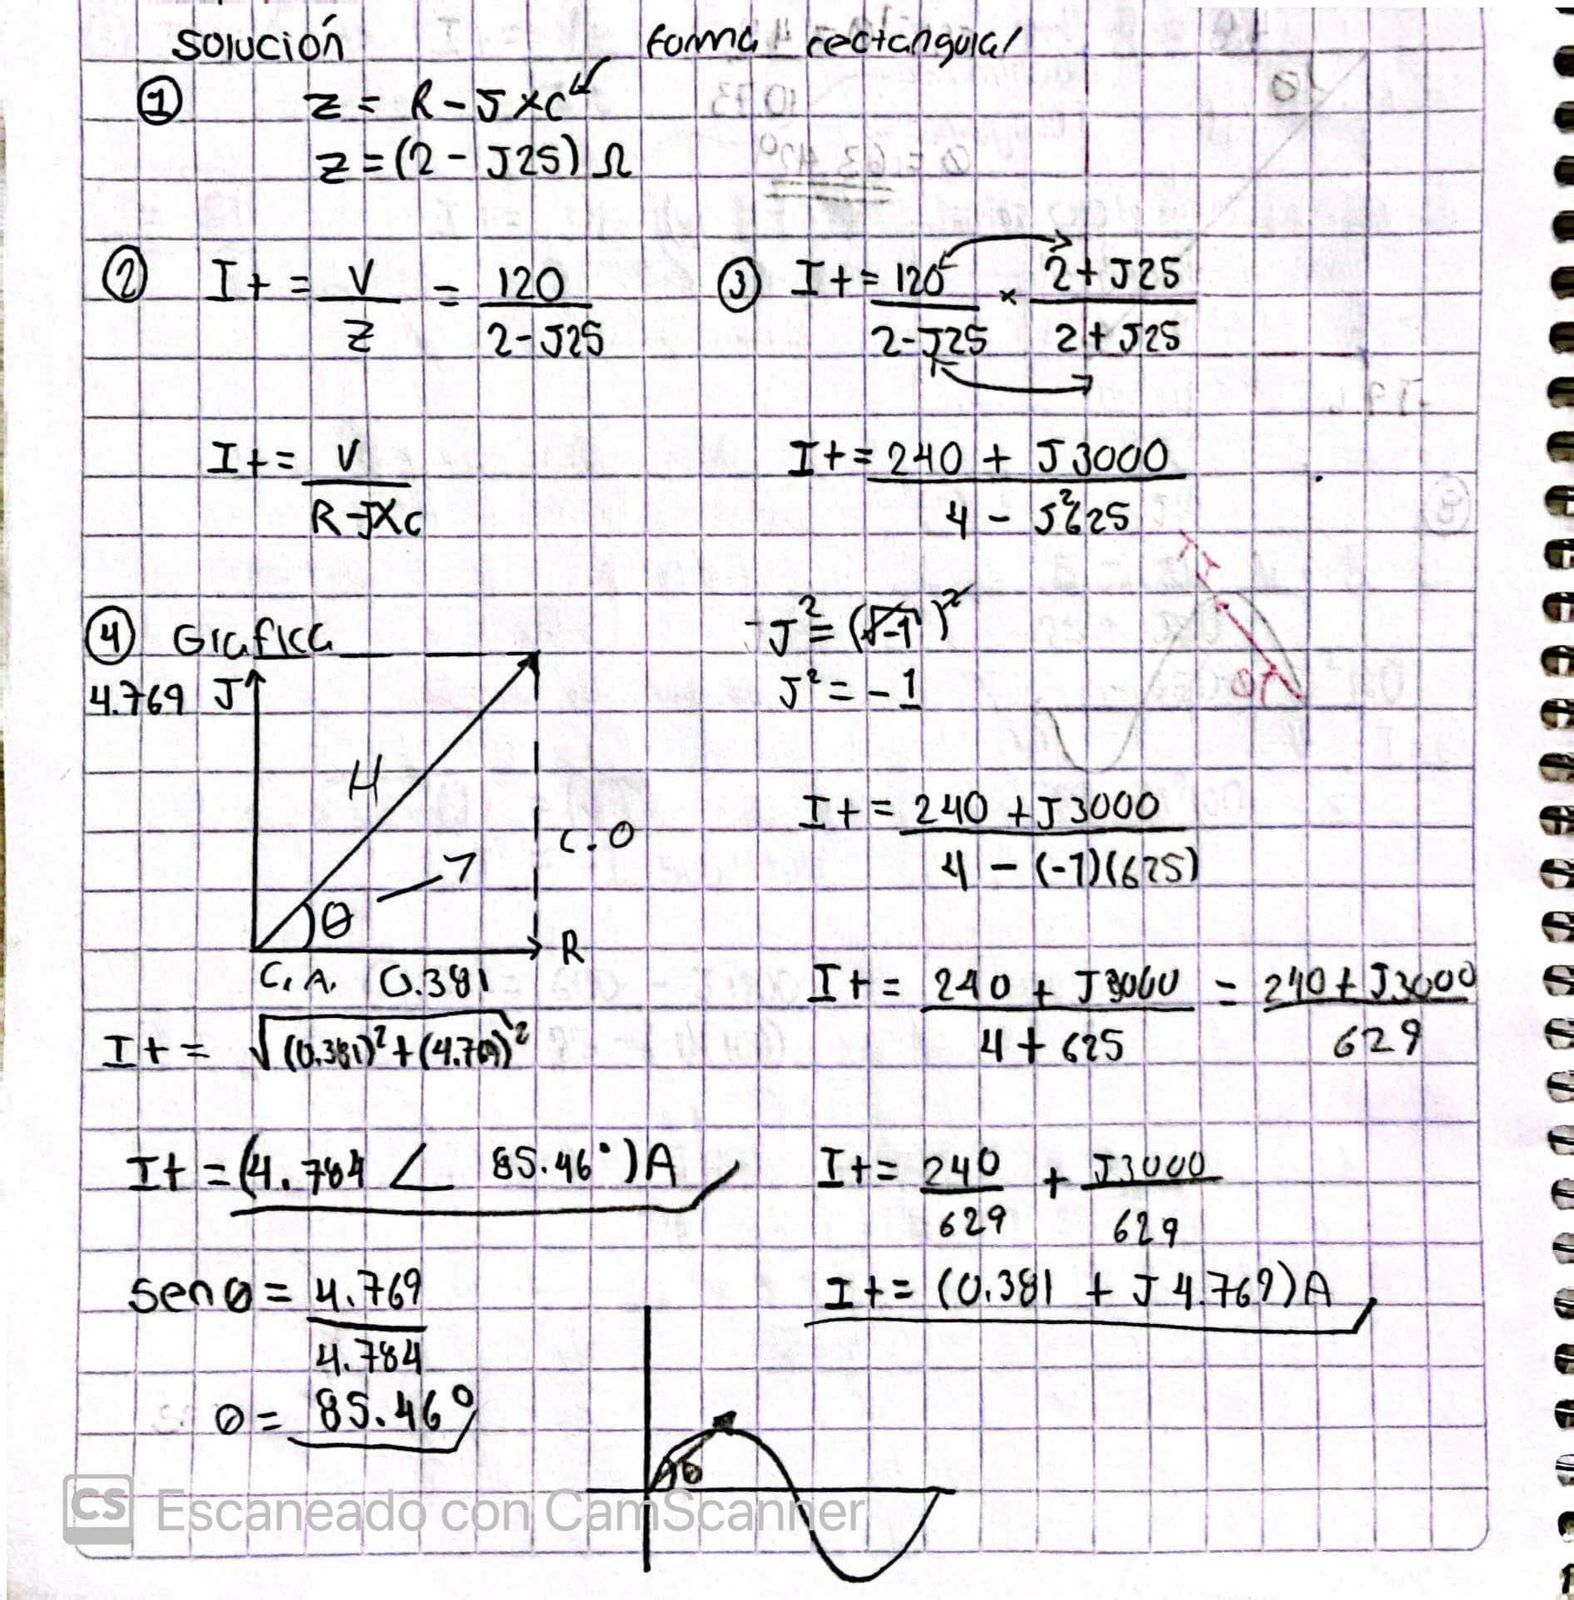 Solución forma rectangular
① Z = R - JXC
Z = (2 - J25) Ω
② It = V/Z = 120/(2-J25)
It = V/(R-JXc)
③ It = 120/(2-J25) × (2+J25)/(2+J25)
It = (240 + J3000)/(4 - J²625)
J² = (√-1)²
J² = -1
It = (240 + J3000)/(4 - (-1)(625))
It = (240 + J3000)/(4 + 625) = (240 + J3000)/629
It = 240/629 + J3000/629
It = (0.381 + J4.769)A
④ Grafica
4.769 J
H
C.O
θ
R
C.A. 0.381
It = √(0.381)² + (4.769)²
It = (4.784 ∠ 85.46°)A
Sen θ = 4.769/4.784
θ = 85.46°
θ
CS Escaneado con CamScanner